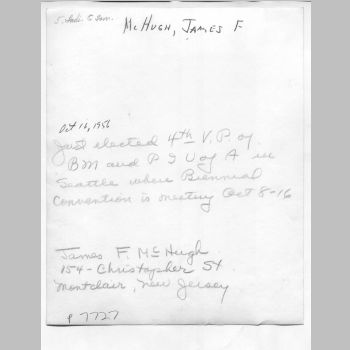 McHugh, James F
Oct 16, 1956
Just elected 4th V.P. of
BM and P I U of A in
Seattle where Biennial
Convention is meeting Oct 8-16
James F. McHugh
154- Christopher St
Montclair, New Jersey
P 7727